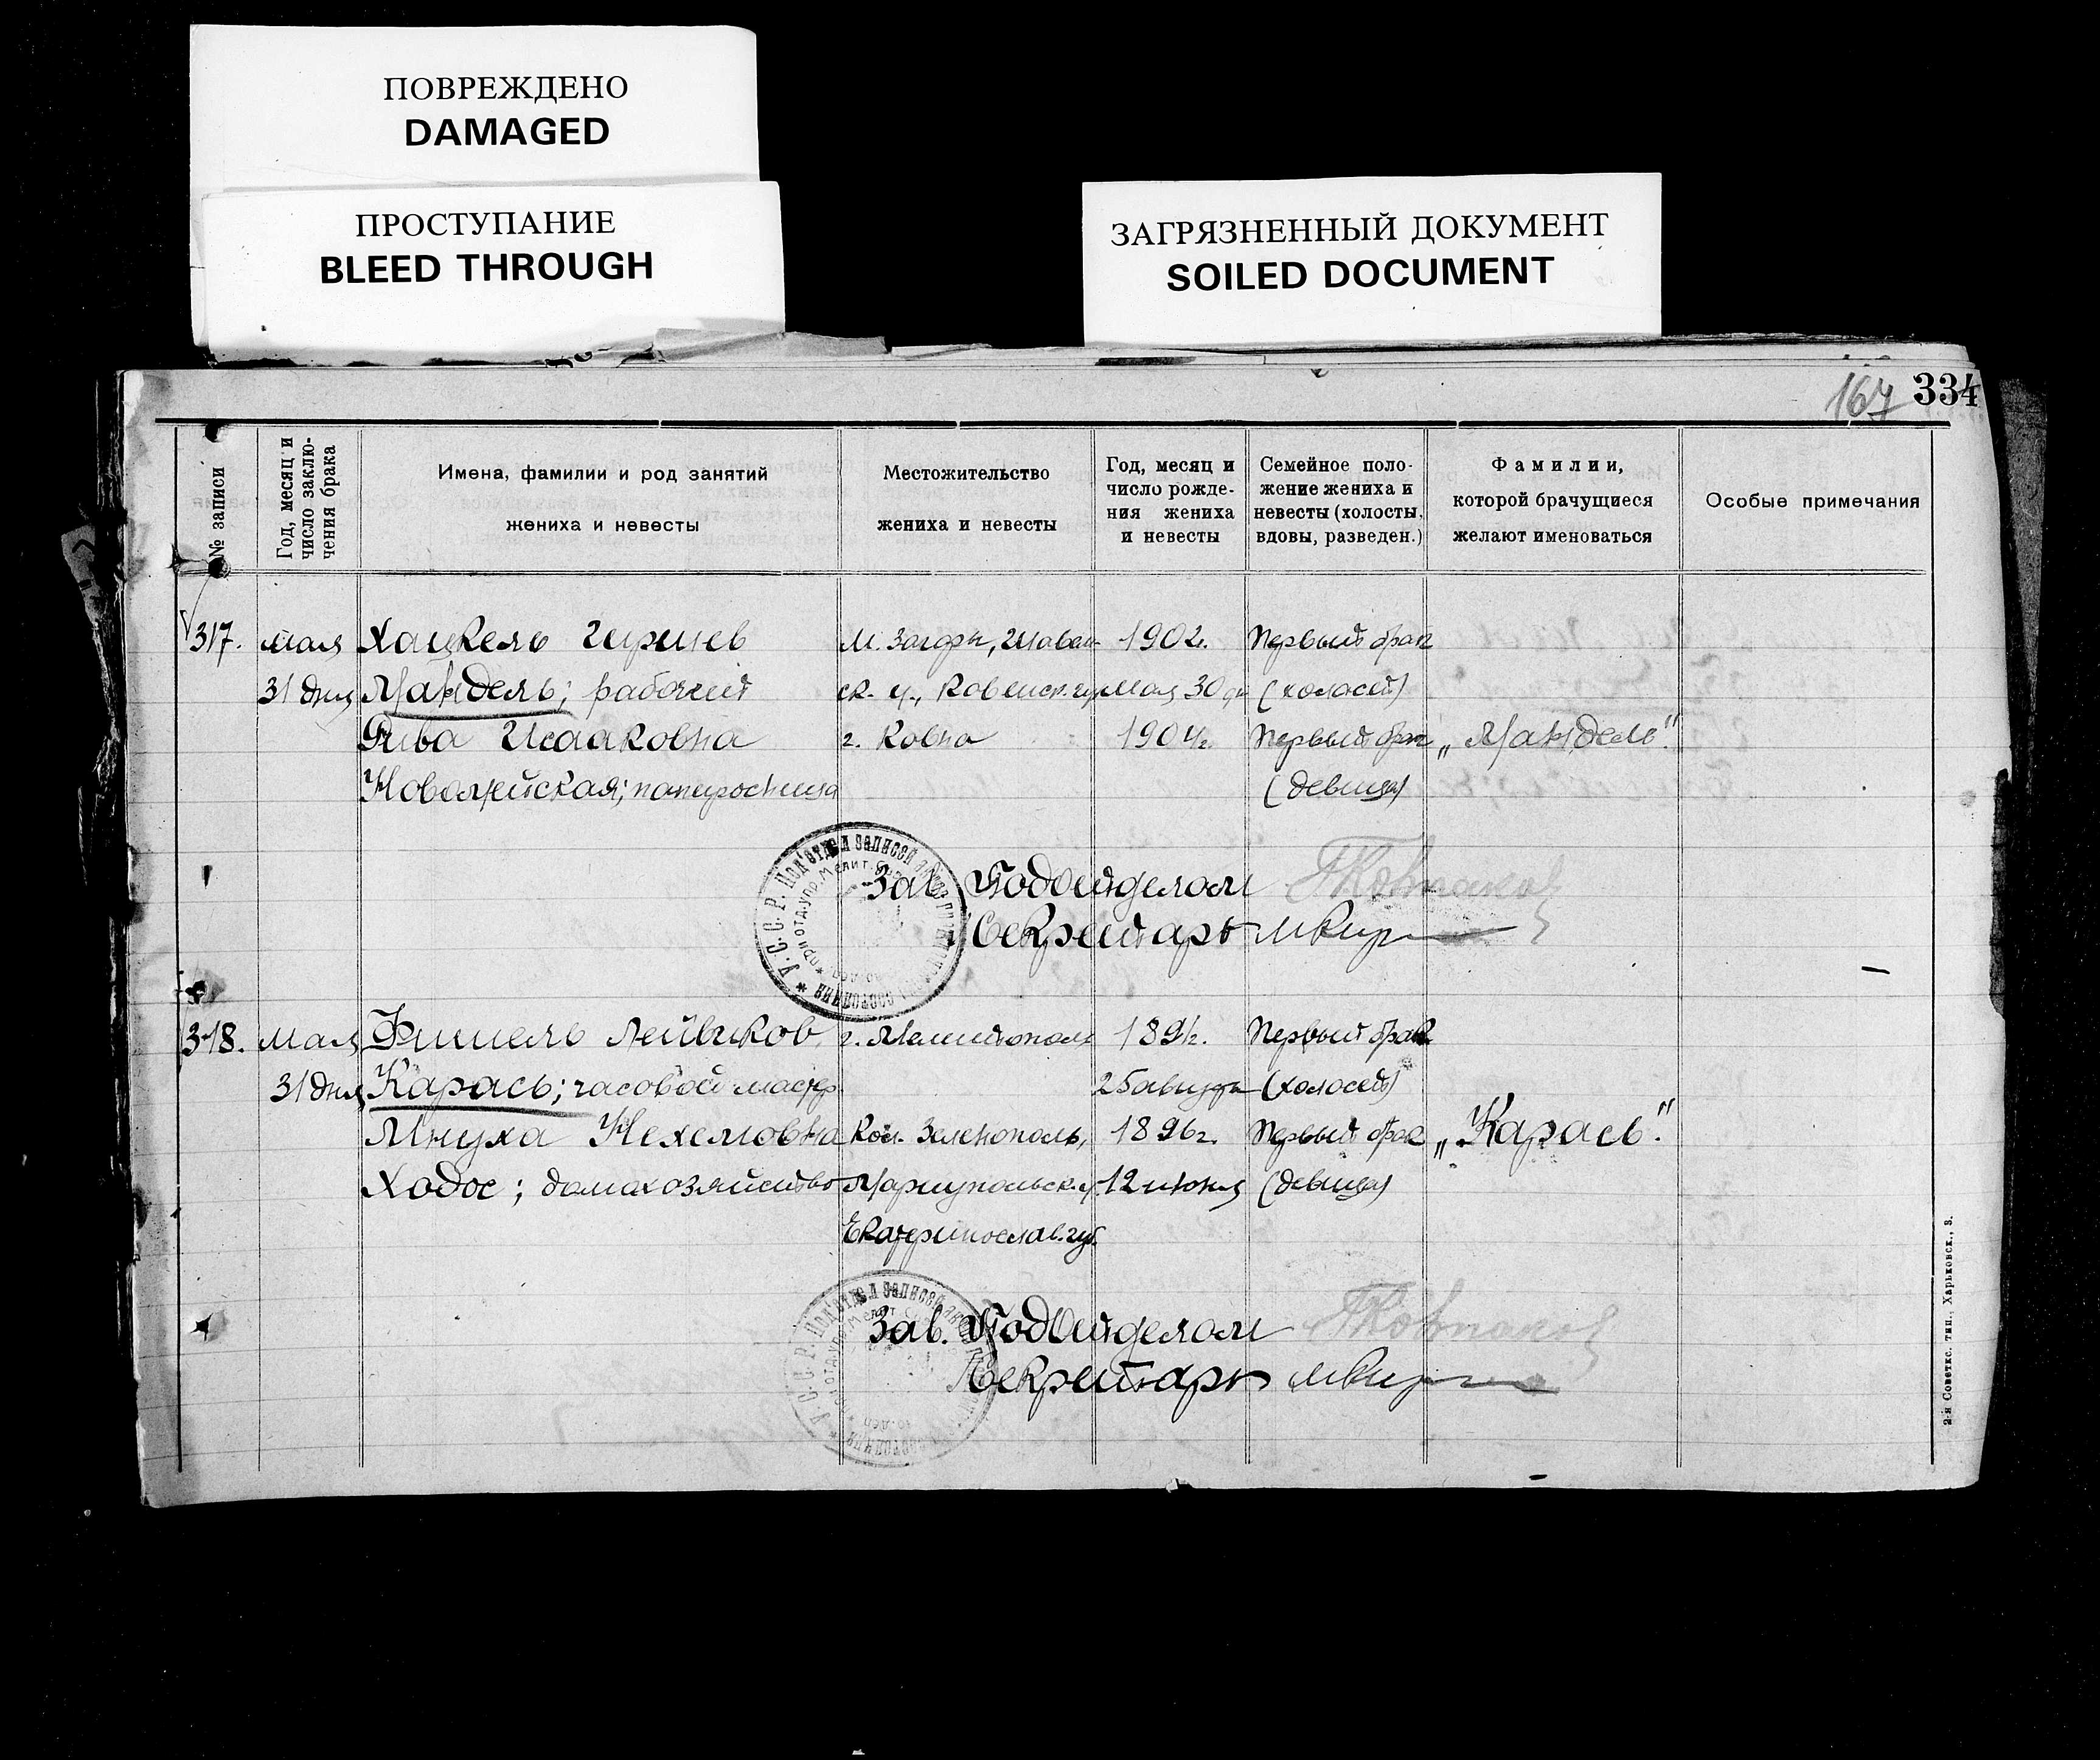 ПОВРЕЖДЕНО
DAMAGED
ПРОСТУПАНИЕ
BLEED THROUGH
ЗАГРЯЗНЕННЫЙ ДОКУМЕНТ
SOILED DOCUMENT
167 334
№ записи
Год, месяц и
число заклю-
чения брака
Имена, фамилии и род занятий
жениха и невесты
Местожительство
жениха и невесты
Год, месяц и
число рожде-
ния жениха
и невесты
Семейное поло-
жение жениха и
невесты (холосты,
вдовы, разведен.)
Фамилии,
которой брачущиеся
желают именоваться
Особые примечания
317. мая Хацкель Гиршев м. Загоры, Шавель- 1902г. Первый брак
31 дня Мандель; рабочий ск. у., Ковенск. губ. мая 30 дня (холост)
Рива Исааковна г. Ковна 1904г. Первый брак „Мандель."
папиросница (девица)
Зав. Подотделом
Секретарь
У.С.С.Р. Под'отдел записей актов гражданск. состояния
318. мая Фишель Лейвиков г. Мелитополь 1891г. Первый брак
31 дня Карась; часовой мастер 25 августа (холост)
Мнуха Нехемовна Кол. Зеленополь, 1896г. Первый брак „Карась."
Ходос; домахозяйство Мариупольск. у. 12 июня (девица)
Екатеринослав. губ.
Зав. Подотделом
Секретарь
2-я Советск. тип., Харьковск., 3.